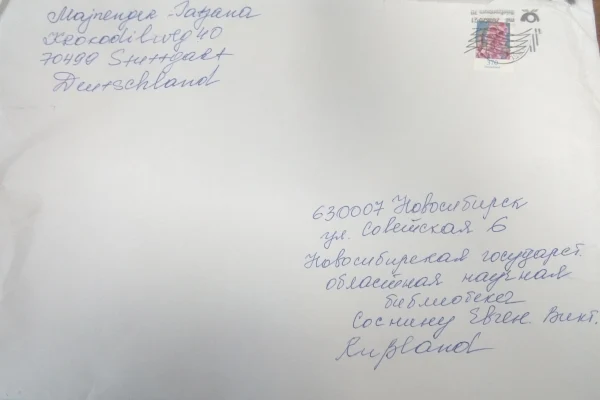 Majnengep Tatjana
Krokodilweg 40
70499 Stuttgart
Deutschland
370
630007 Новосибирск
ул. Советская 6
Новосибирская государст.
областная научная
библиотека
Соснину Евген. Викт.
Rußland